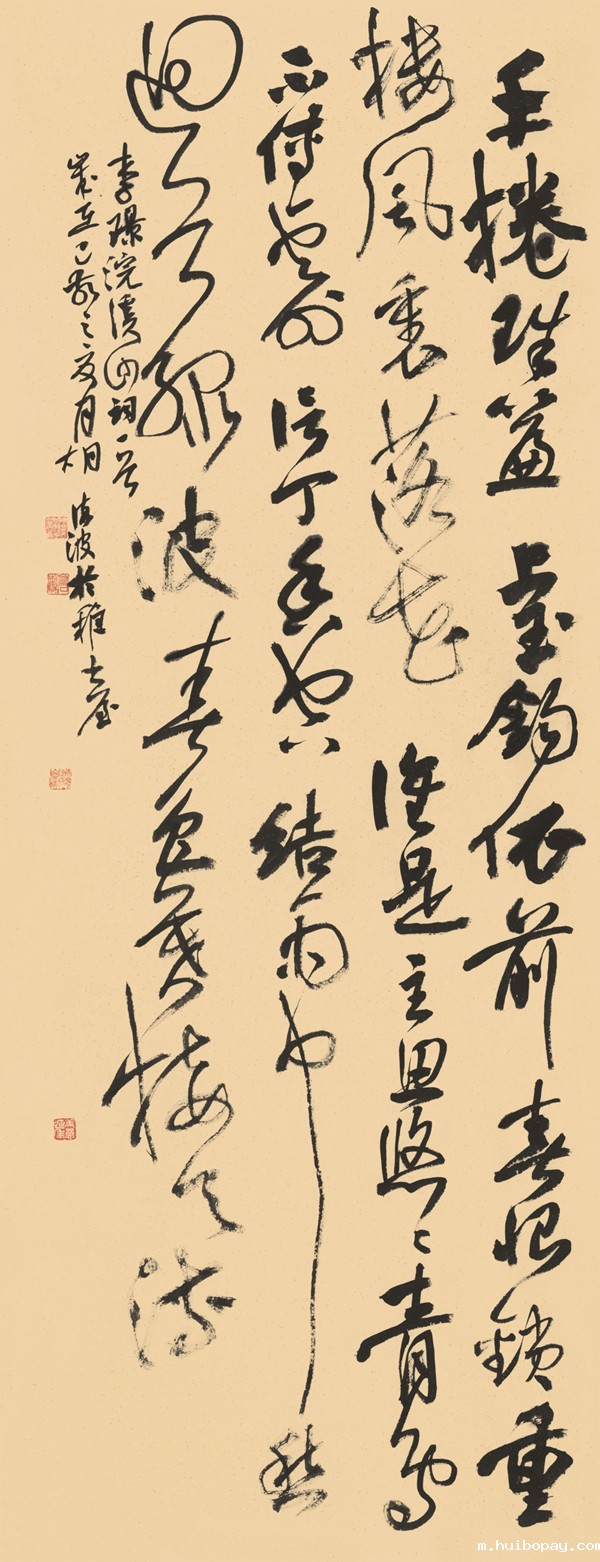 手捲珠簾上玉鉤依前春恨鎖重
樓風裏落花誰是主思悠々青鳥
不傳雲外信丁香空結雨中愁
迴首綠波春色暮接天流
李璟浣溪沙詞一首
歲在己亥之夏月 波於雅士
m.huibopay.com